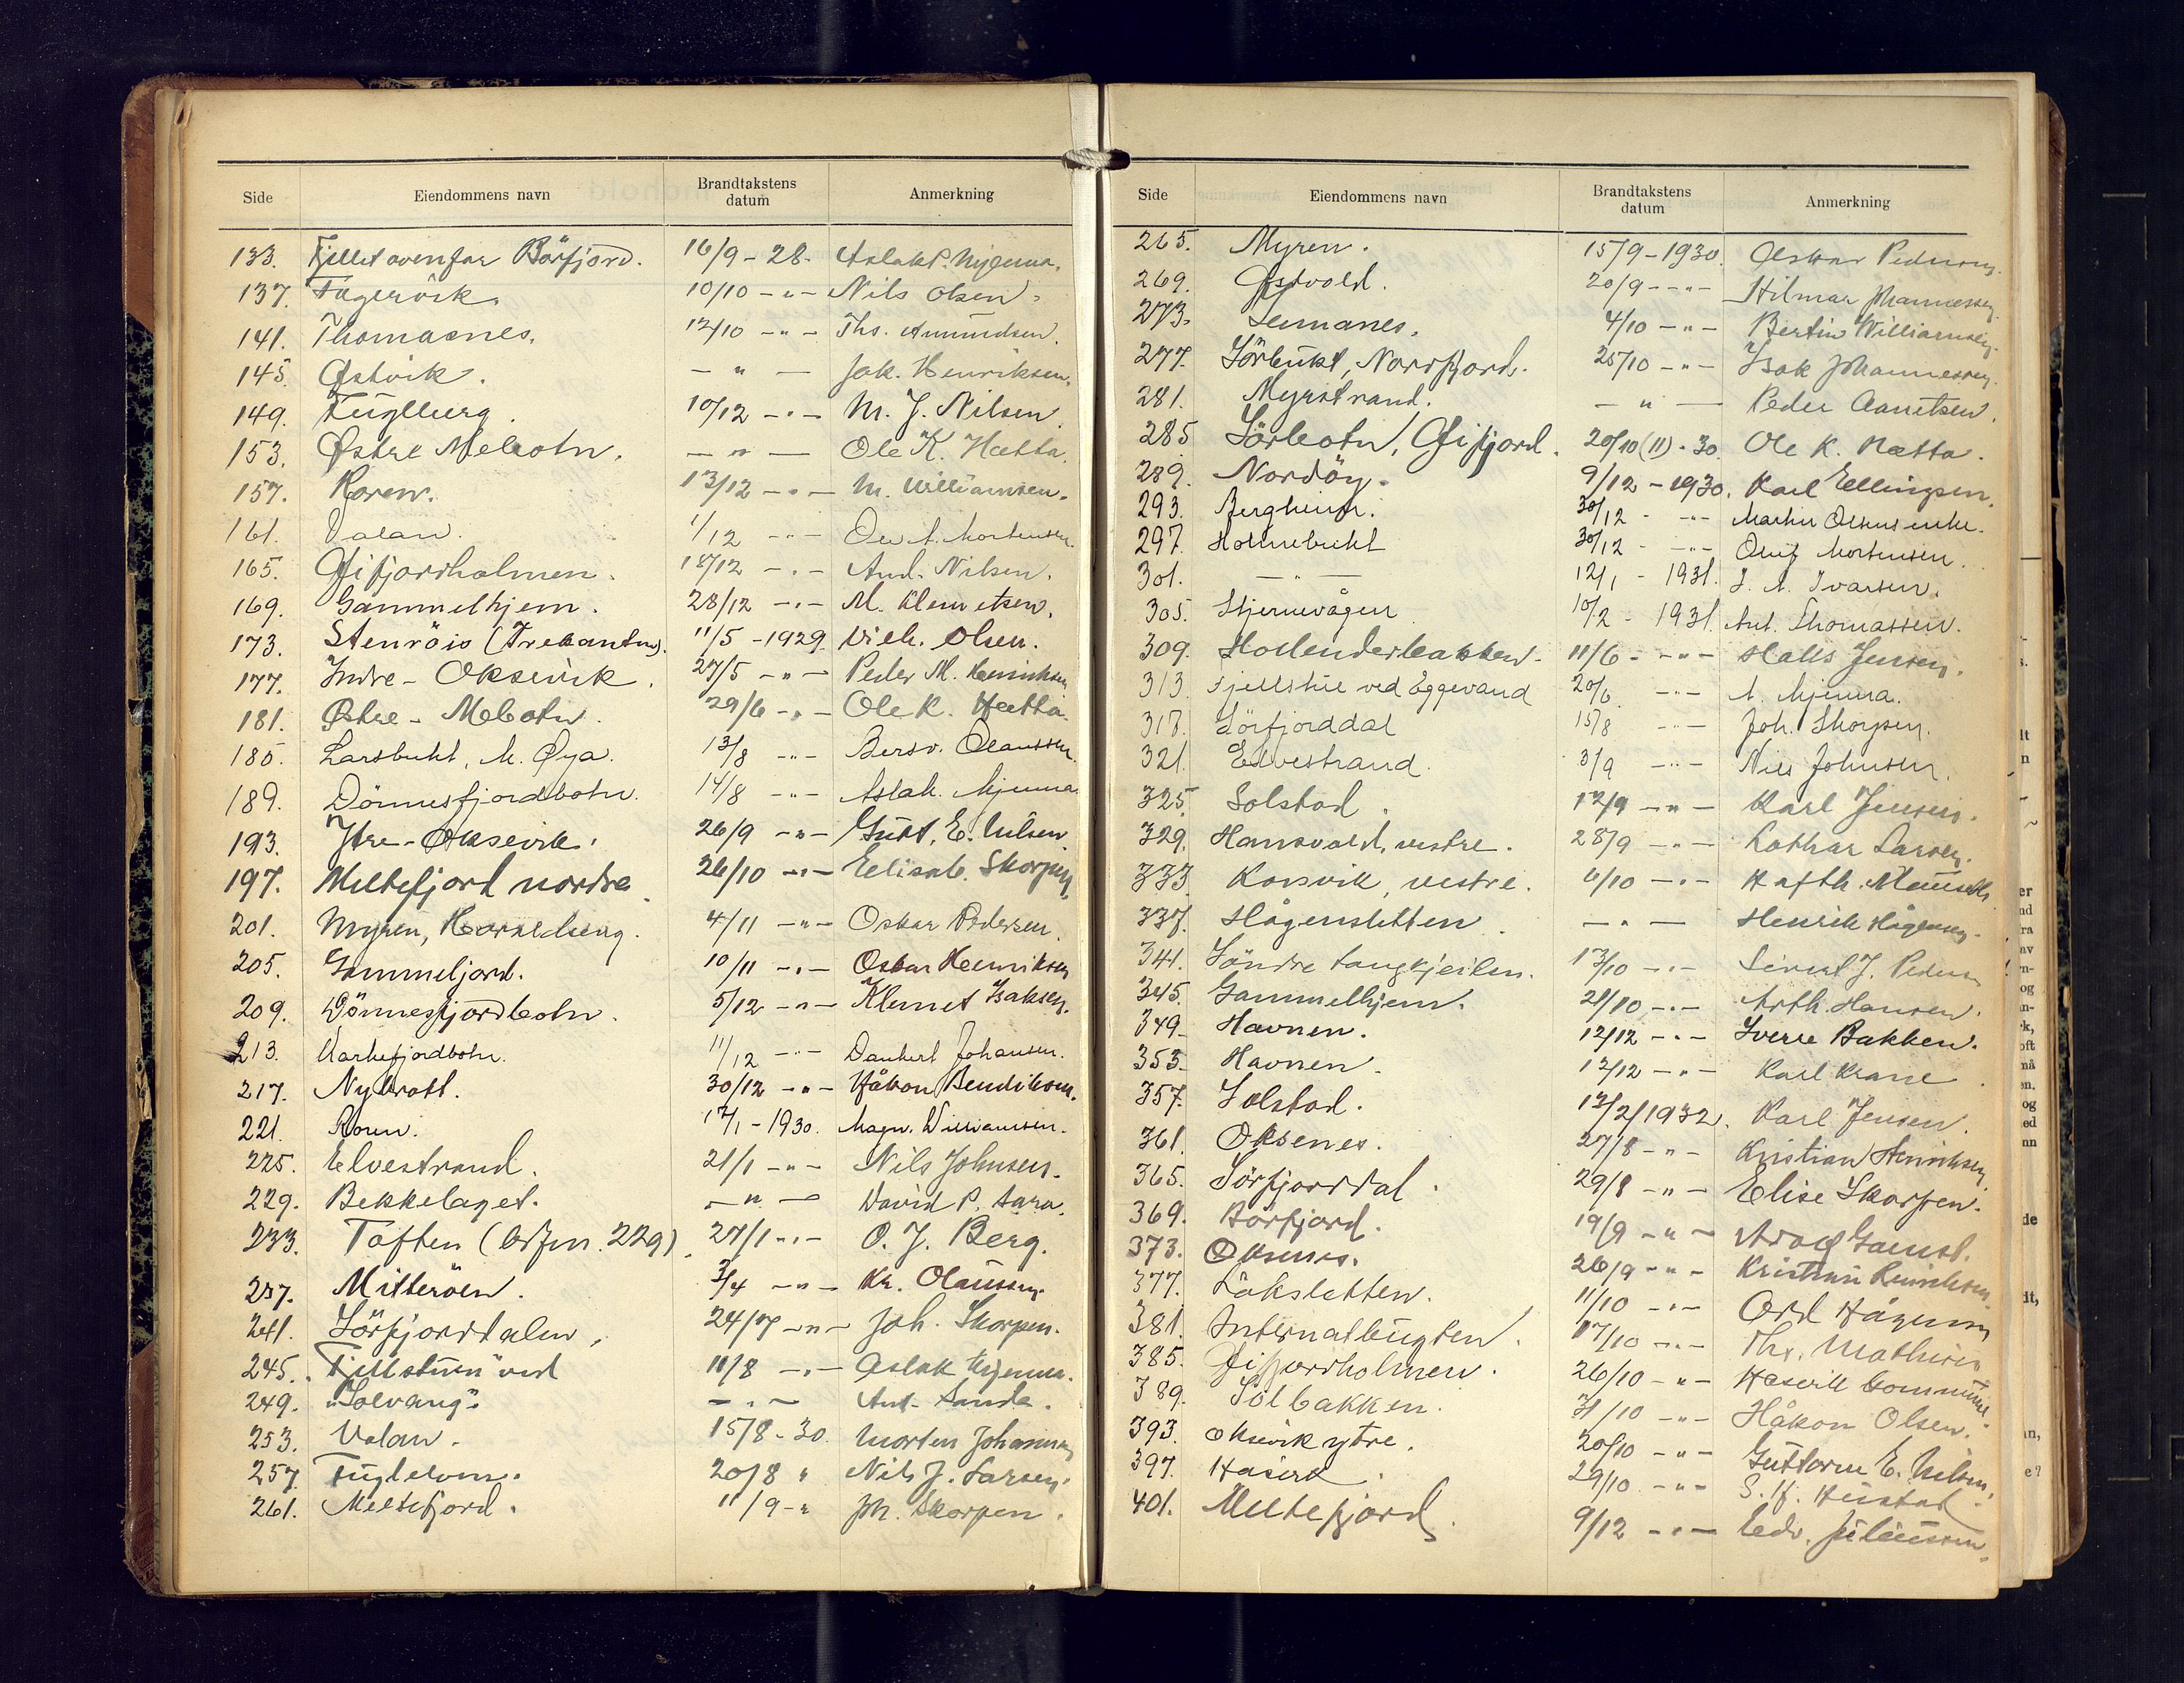 Side Eiendommens navn Brandtakstens datum Anmerkning
133. Fjellet ovenfor Börfjord. 16/9 - 28. Aslak P. Njenna.
137. Fagervik. 10/10 - " - Nils Olsen.
141. Thomasnes. 12/10 - " - Ths. Amundsen.
145. Østvik. - " - Jak. Henriksen.
149. Fuglberg. 10/12 - " - M. J. Nilsen
153. Østre Mebotn. - " - Ole K. Hætta.
157. Roren. 13/12 - " - M. Williamsen.
161. Valan. 1/12 - " - A. Mortensen.
165. Øifjordholmen. 18/12 - " - And. Nilsen.
169. Gammelhjem. 28/12 - " - M. Klemetsen.
173. Stenröis (Trekanten). 11/5 - 1929. Vilh. Olsen.
177. Indre - Oksevik. 27/5 - " - Peder M. Henriksen
181. Østre - Mebotn. 29/6 - " - Ole K. Hætta.
185. Larsbukt, M. Øya. 13/8 - " - Bersv. Olaussen.
189. Dönnesfjordbotn. 14/8 - " - Aslak. Njenna
193. Ytre - Oksevik. 26/9 - " - Gutt. E. Nilsen.
197. Meltefjord nordre. 26/10 - " - Elisab. Skorpen.
201. Myren, 4/11 - " - Oskar Pedersen.
205. Gammeljord. 10/11 - " - Oskar Henriksen
209. Dönnesfjordbotn. 5/12 - " - Klemet Isaksen.
213. Markefjordbotn. 11/12 - " - Dankert Johansen.
217. Nybrott. 30/12 - " - Håkon Bendiksen.
221. Roren. 17/1 - 1930. Magn. Williamsen.
225. Elvestrand. 21/1 - " - Nils Johnsen.
229. Bekkelaget. - " - David P. Sara.
233. Toften (br.fm. 229). 27/1 - " - O. J. Berg.
237. Mitteröen. 3/4 - " - Kr. Olaussen.
241. Sörfjorddalen. 24/7 - " - Joh. Skorpen.
245. "Fjellstuen" ved 11/8 - " - Aslak Njenna.
249. "Solvang". - " - Ant. Sanda.
253. Valan. 15/8 - 30. Morten Johannsen
257. Fuglelom. 20/8 " Nils J. Larsen.
261. Meltefjord. 11/9 - " Joh. Skorpen.
Side Eiendommens navn Brandtakstens datum Anmerkning
265. Myren. 15/9 - 1930. Oskar Pedersen.
269. Østvold. 20/9 - " - Hilmar Johannessen.
273. Lemanes. 4/10 - " - Bertin Williamsen.
277. Sörbukt, Norrfjord. 25/10 - " - Isak Johannessen.
281. Myrstrand. - " - Peder Aanetsen.
285 Sörbotn, Øifjord. 20/10 (11) - 30. Ole K. Hætta.
289. Nordöy. 9/12 - 1930. Karl Ellingsen.
293. Bergheim. 30/12 - " - Martin Olsens enke.
297. Holmebukt 30/12 - " - Oluf Mortensen.
301. - " - 12/1 - 1931. J. A. Ivarsen.
305. Stjernevågen 10/2 - 1931. Ant. Thomassen.
309. Hollenderbakken. 11/6 - " - Halls Jensen.
313. Fjellstue ved Eggevand 20/6 - " - A. Njenna.
317. Sörfjorddal 15/8 - " - Joh. Skorpen.
321. Elvestrand. 3/9 - " - Nils Johnsen.
325. Solstad. 12/9 - " - Karl Jensen.
329. Hansvold, vestre. 28/9 - " - Lothar Larsen.
333. Korsvik, vestre. 6/10 - " - Hafth.
337. Hågensletten. - " - Henrik Hågensen.
341. Söndre Langkjeilen. 13/10 - " - Sivert J. Pedersen
345. Gammelhjem. 21/10 - " - Arth. Hansen.
349. Havnen. 12/12 - " - Sverre Bakken.
353. Havnen. 12/12 - " - Karl Krane.
357. Solstad. 12/2/1932. Karl Jensen.
361. Oksenes. 27/8 - " - Kristian Henriksen.
365. Sörfjorddal. 29/8 - " - Elise Skorpen.
369. Börfjord. 19/9 - " - Arod Gamst.
373. Oksenes. 26/9 - " - Kristian Henriksen.
377. Låksletten. 11/10 - " - Ord Hågensen
381. Internatbugten. 17/10 - " - Ths. Mathisen
385. Øifjordholmen. 26/10 - " - Hasvik Kommune.
389. Solbakken. 31/10 - " - Håkon Olsen.
393. Oksevik ytre. 20/10 - " - Guttorm E. Nilsen.
397. Hasvik. 29/10 - " - S. H. Hustad.
401. Meltefjord. 9/12 - " - Edv. Juliussen.